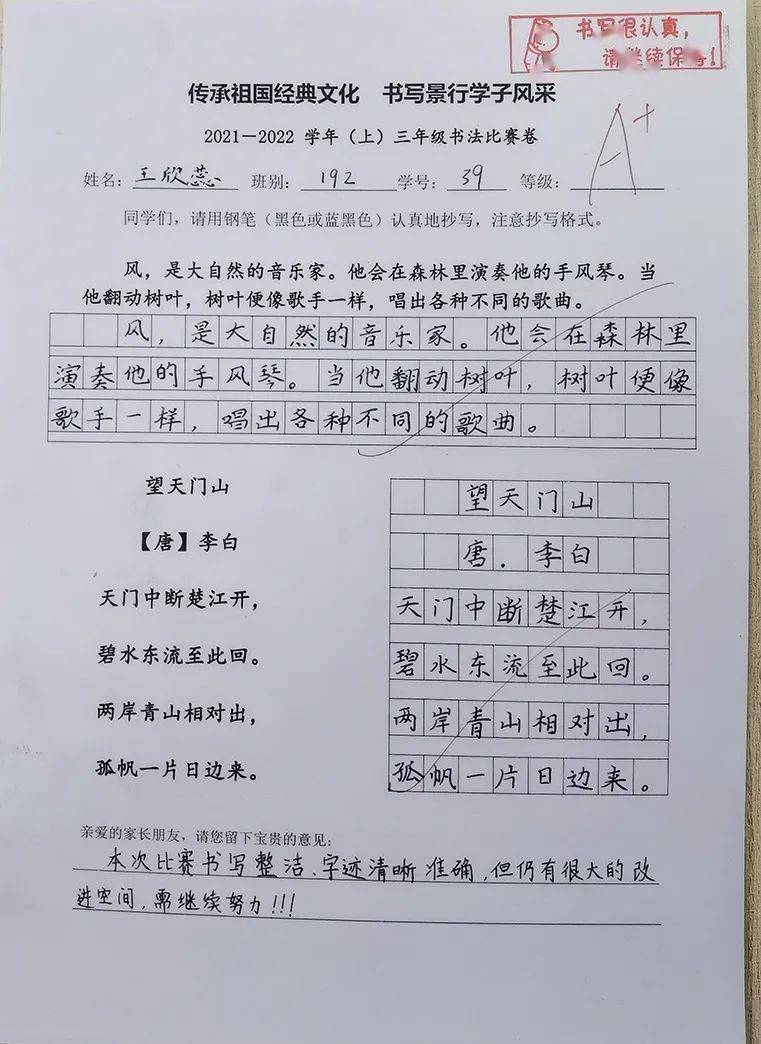 书写很认真，
请继续保持！
传承祖国经典文化 书写景行学子风采
2021—2022 学年（上）三年级书法比赛卷
A+
姓名：王欣蕊 班别：192 学号：39 等级：
同学们，请用钢笔（黑色或蓝黑色）认真地抄写，注意抄写格式。
风，是大自然的音乐家。他会在森林里演奏他的手风琴。当
他翻动树叶，树叶便像歌手一样，唱出各种不同的歌曲。
风，是大自然的音乐家。他会在森林里
演奏他的手风琴。当他翻动树叶，树叶便像
歌手一样，唱出各种不同的歌曲。
望天门山
【唐】李白
天门中断楚江开，
碧水东流至此回。
两岸青山相对出，
孤帆一片日边来。
望天门山
唐．李白
天门中断楚江开，
碧水东流至此回。
两岸青山相对出，
孤帆一片日边来。
亲爱的家长朋友，请您留下宝贵的意见：
本次比赛书写整洁、字迹清晰准确，但仍有很大的改
进空间，需继续努力！！！